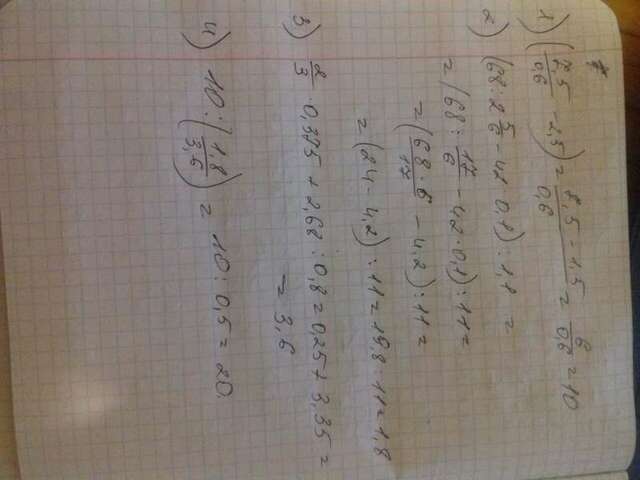 1) (7,5/0,6 - 1,5) = 7,5 - 1,5/0,6 = 6/0,6 = 10
2) (68 : 2 5/6 - 42 · 0,1) : 11 =
= (68 : 17/6 - 4,2 · 0,1) : 11 =
= (68 · 6/17 - 4,2) : 11 =
= (24 - 4,2) : 11 = 19,8 : 11 = 1,8
3) 2/3 · 0,375 + 2,68 : 0,8 = 0,25 + 3,35 =
= 3,6
4) 10 : (1,8/3,6) = 10 : 0,5 = 20